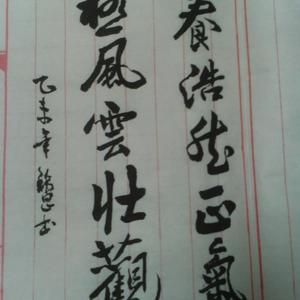 養浩然正氣
極風雲壯觀
乙未年